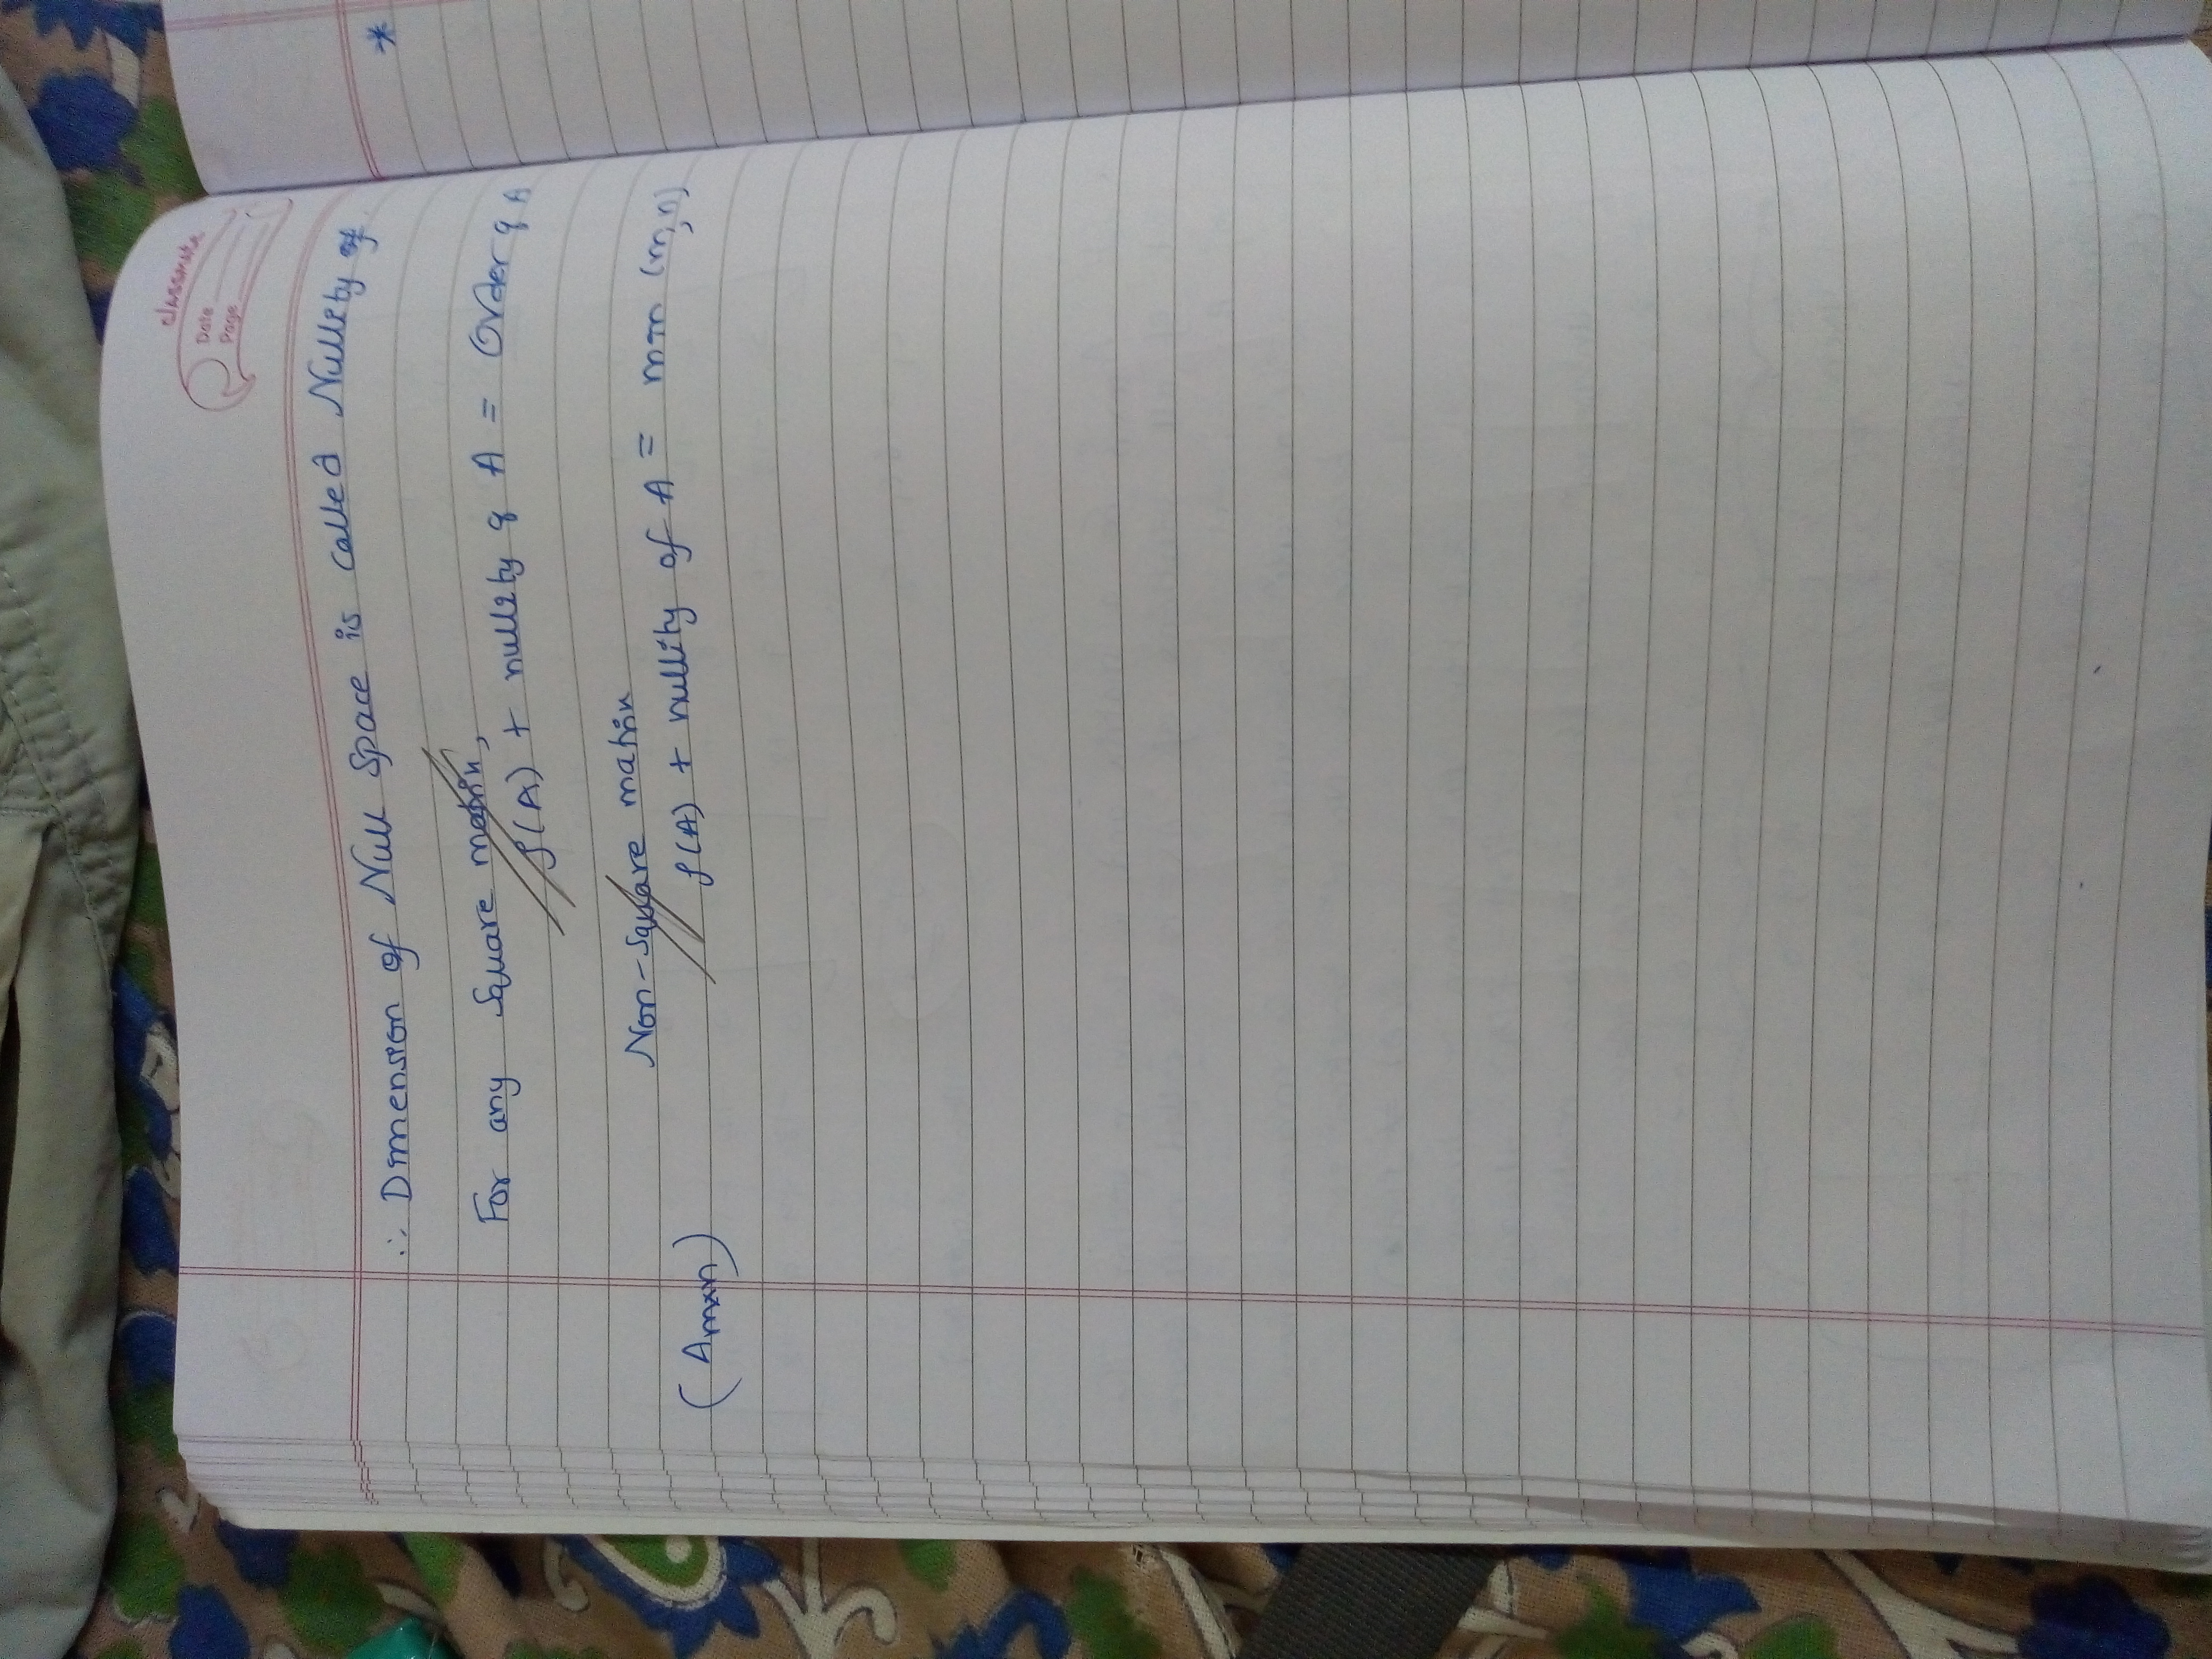 classmate
Date
Page
∴ Dimension of Null Space is called Nullity of
For any Square matrix,
ρ(A) + nullity of A = Order of A
Non-Square matrix
(Amxn) ρ(A) + nullity of A = min (m,n)
*